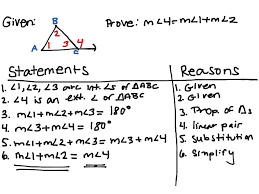 Given:
Prove: m∠4=m∠1+m∠2
B
2
1 3 4
A C
Statements
Reasons
1. ∠1, ∠2, ∠3 are int. ∠s of △ABC
1. Given
2. ∠4 is an ext. ∠ of △ABC
2. Given
3. m∠1+m∠2+m∠3= 180°
3. Prop. of △s
4. m∠3+m∠4 = 180°
4. linear pair
5. m∠1+m∠2+m∠3 = m∠3+m∠4
5. substitution
6. m∠1+m∠2 = m∠4
6. simplify